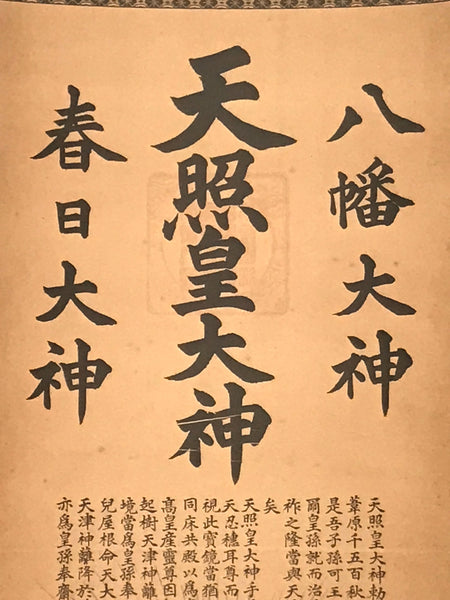 八幡大神
天照皇大神
春日大神
天照皇大神勅
葦原千五百秋
是吾子孫可王
爾皇孫就而治
祚之隆當與天
矣
天照皇大神手
天忍穗耳尊而
視此寶鏡當猶
同床共殿以爲
高皇産靈尊因
起樹天津神籬
境當爲皇孫奉
兒屋根命天太
天津神籬降於
亦爲皇孫奉齋